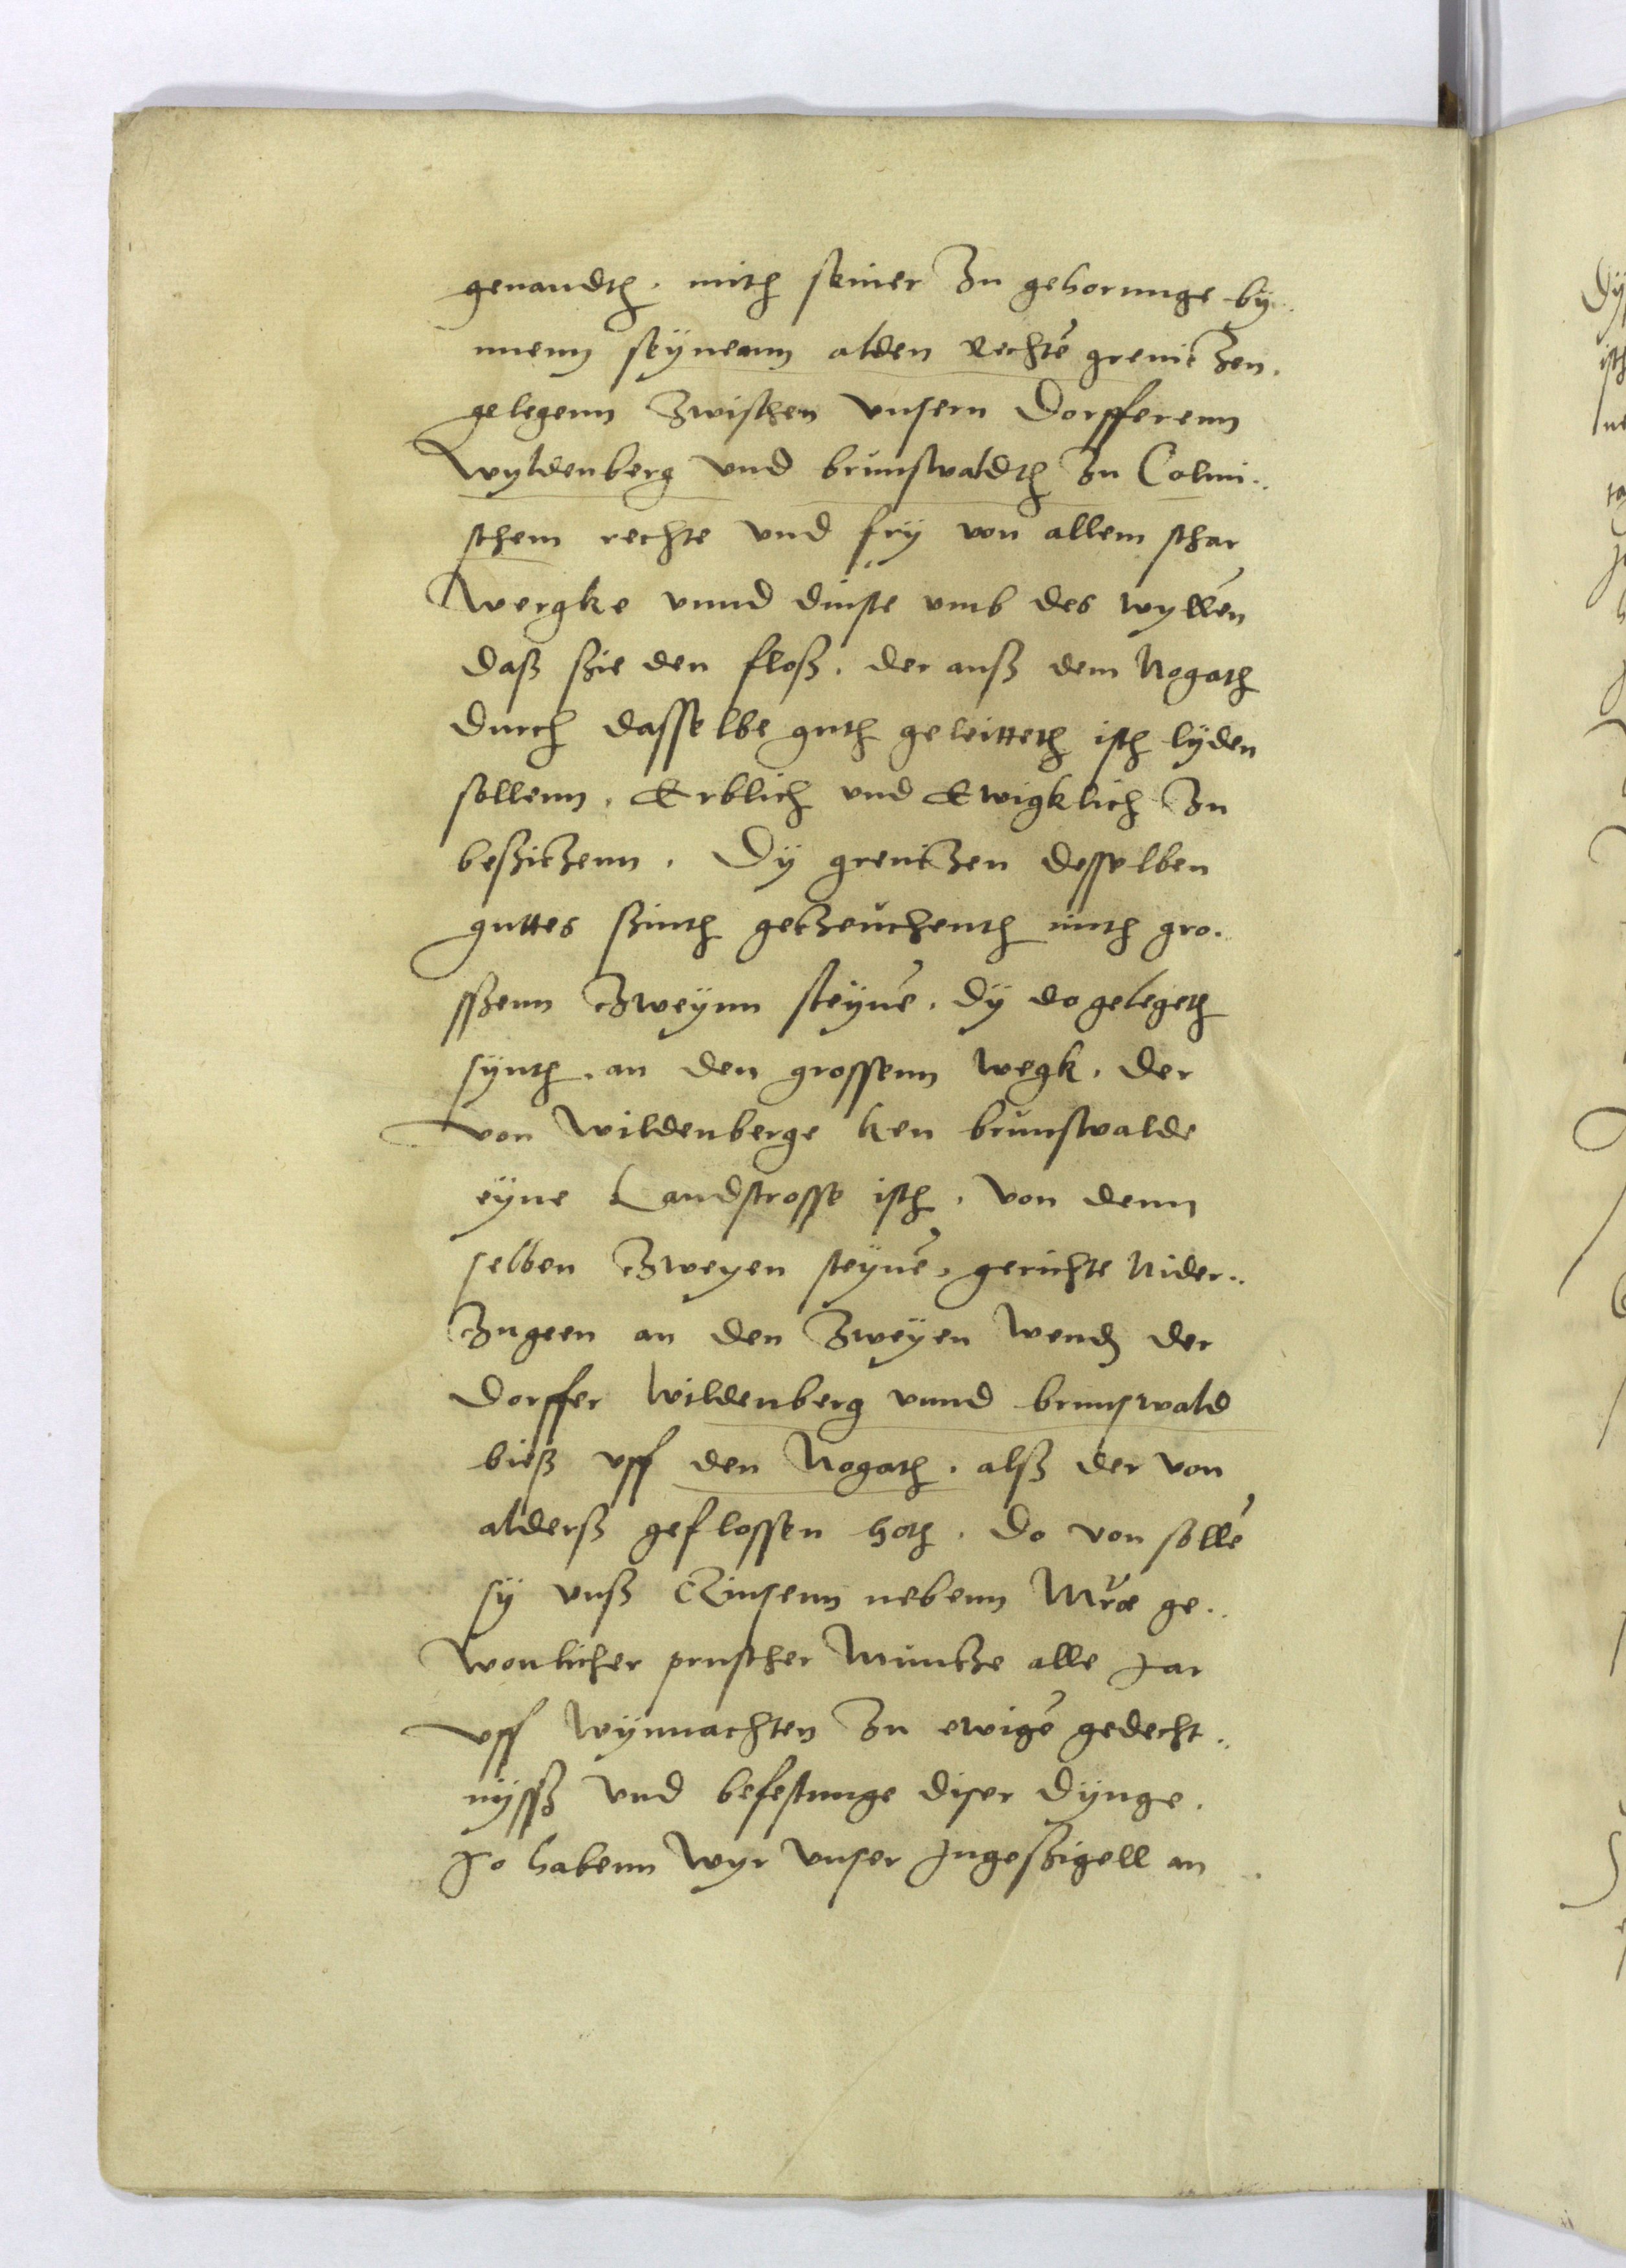 genandth. mith seiner zu gehorunge by..
nnenn seynenn alden Rechtē grenitzen.
gelegenn zwischen vnsern Dorfferenn
Wyldenberg vnd brunswaldth zu Colmi..
schem rechte vnd fry von allem schar
Wergke vnnd dinste vmb des wyllēn
daß ßie den floß. der auß dem Nogath
durch dasselbe guth geleitteth isth lyden
sollenn. Erblich vnd Ewigklich zu
beßitzenn. Dÿ grenitzen desselben
guttes ßinth getzeuchenth mith gro.
sßenn tzweynn steynē. dÿ do gelegeth
synth. an den grossenn wegk. der
von Wildenberge ken brunswalde
eyne Landstrosse isth. von denn
selben tzweyen steynē. gerichte Nider..
zugeen an den zweyen wend der
Dorffer Wildenberg vnnd brunswald
bieß vff den Nogath. alß der von
alderß geflossen hoth. Do von sollē
sÿ vnß Czinsenn nebenn Mrͦc ge..
wonlicher pruscher Muntze alle Jar
vff Wynnachten zu ewigē gedecht..
nyssß vnd befestunge diser dynge.
So habenn Wyr vnser Jngeßigell an